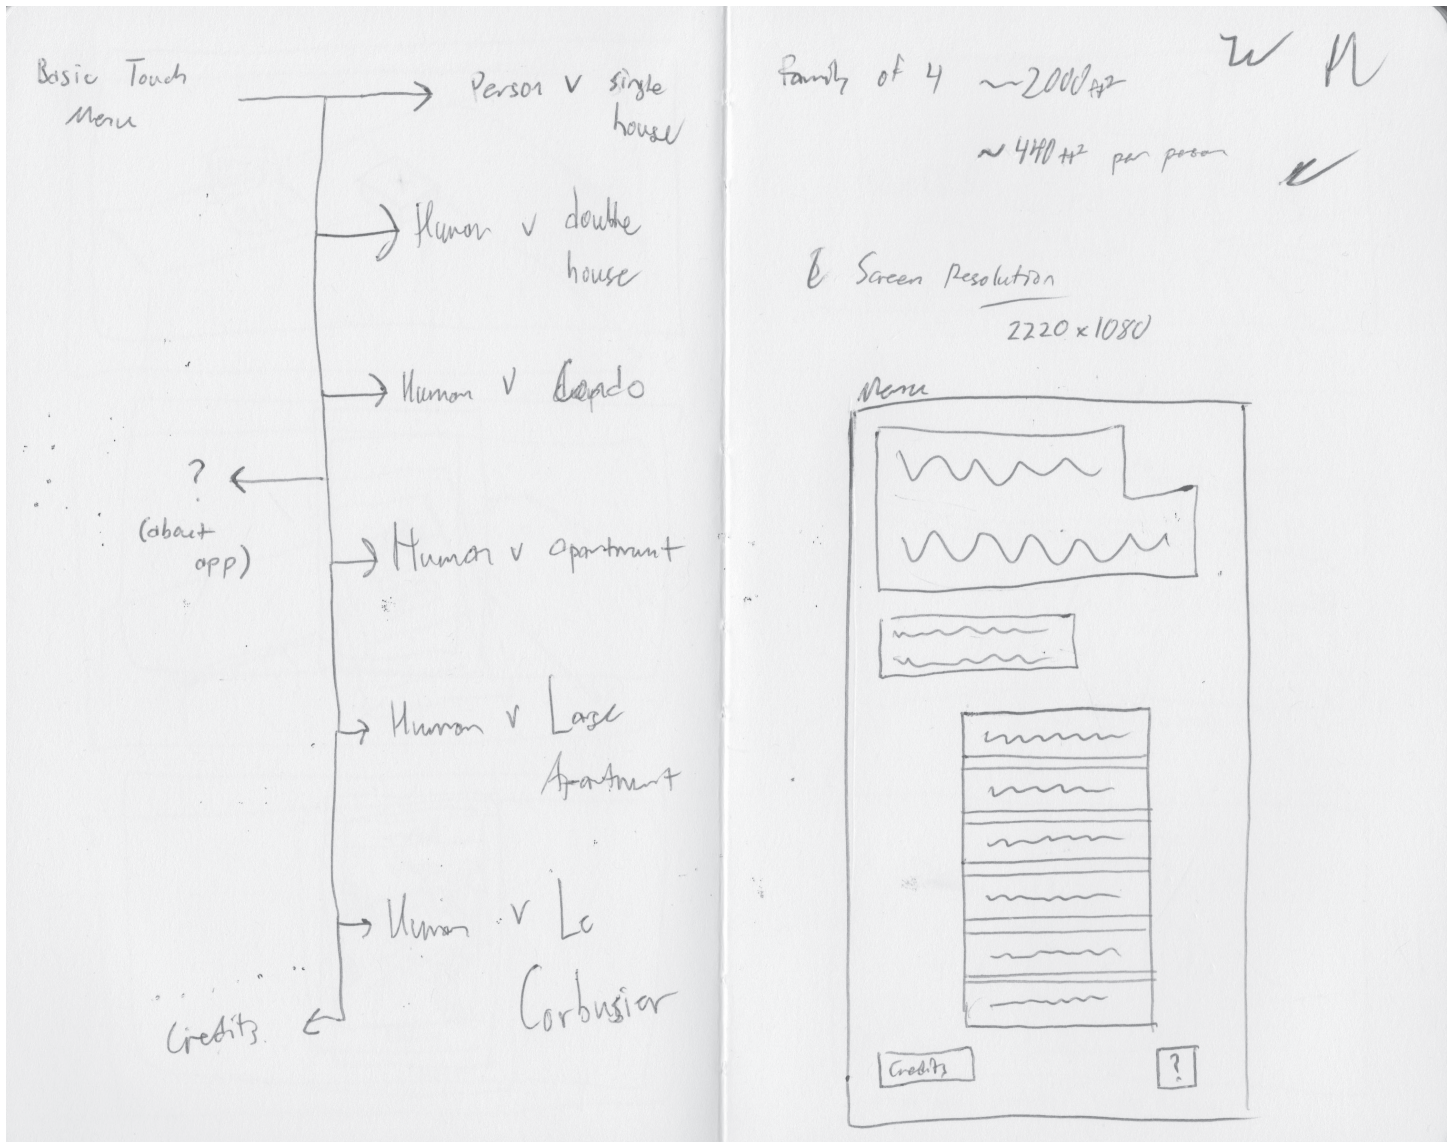 Basic Touch
Menu
Person v single
house
Human v double
house
Human v Condo
?
(about
app)
Human v apartment
Human v Large
Apartment
Human v Le
Corbusier
Credits
Family of 4 ~2000 ft²
~440 ft² per person
Screen Resolution
2220 x 1080
Menu
Credits
?